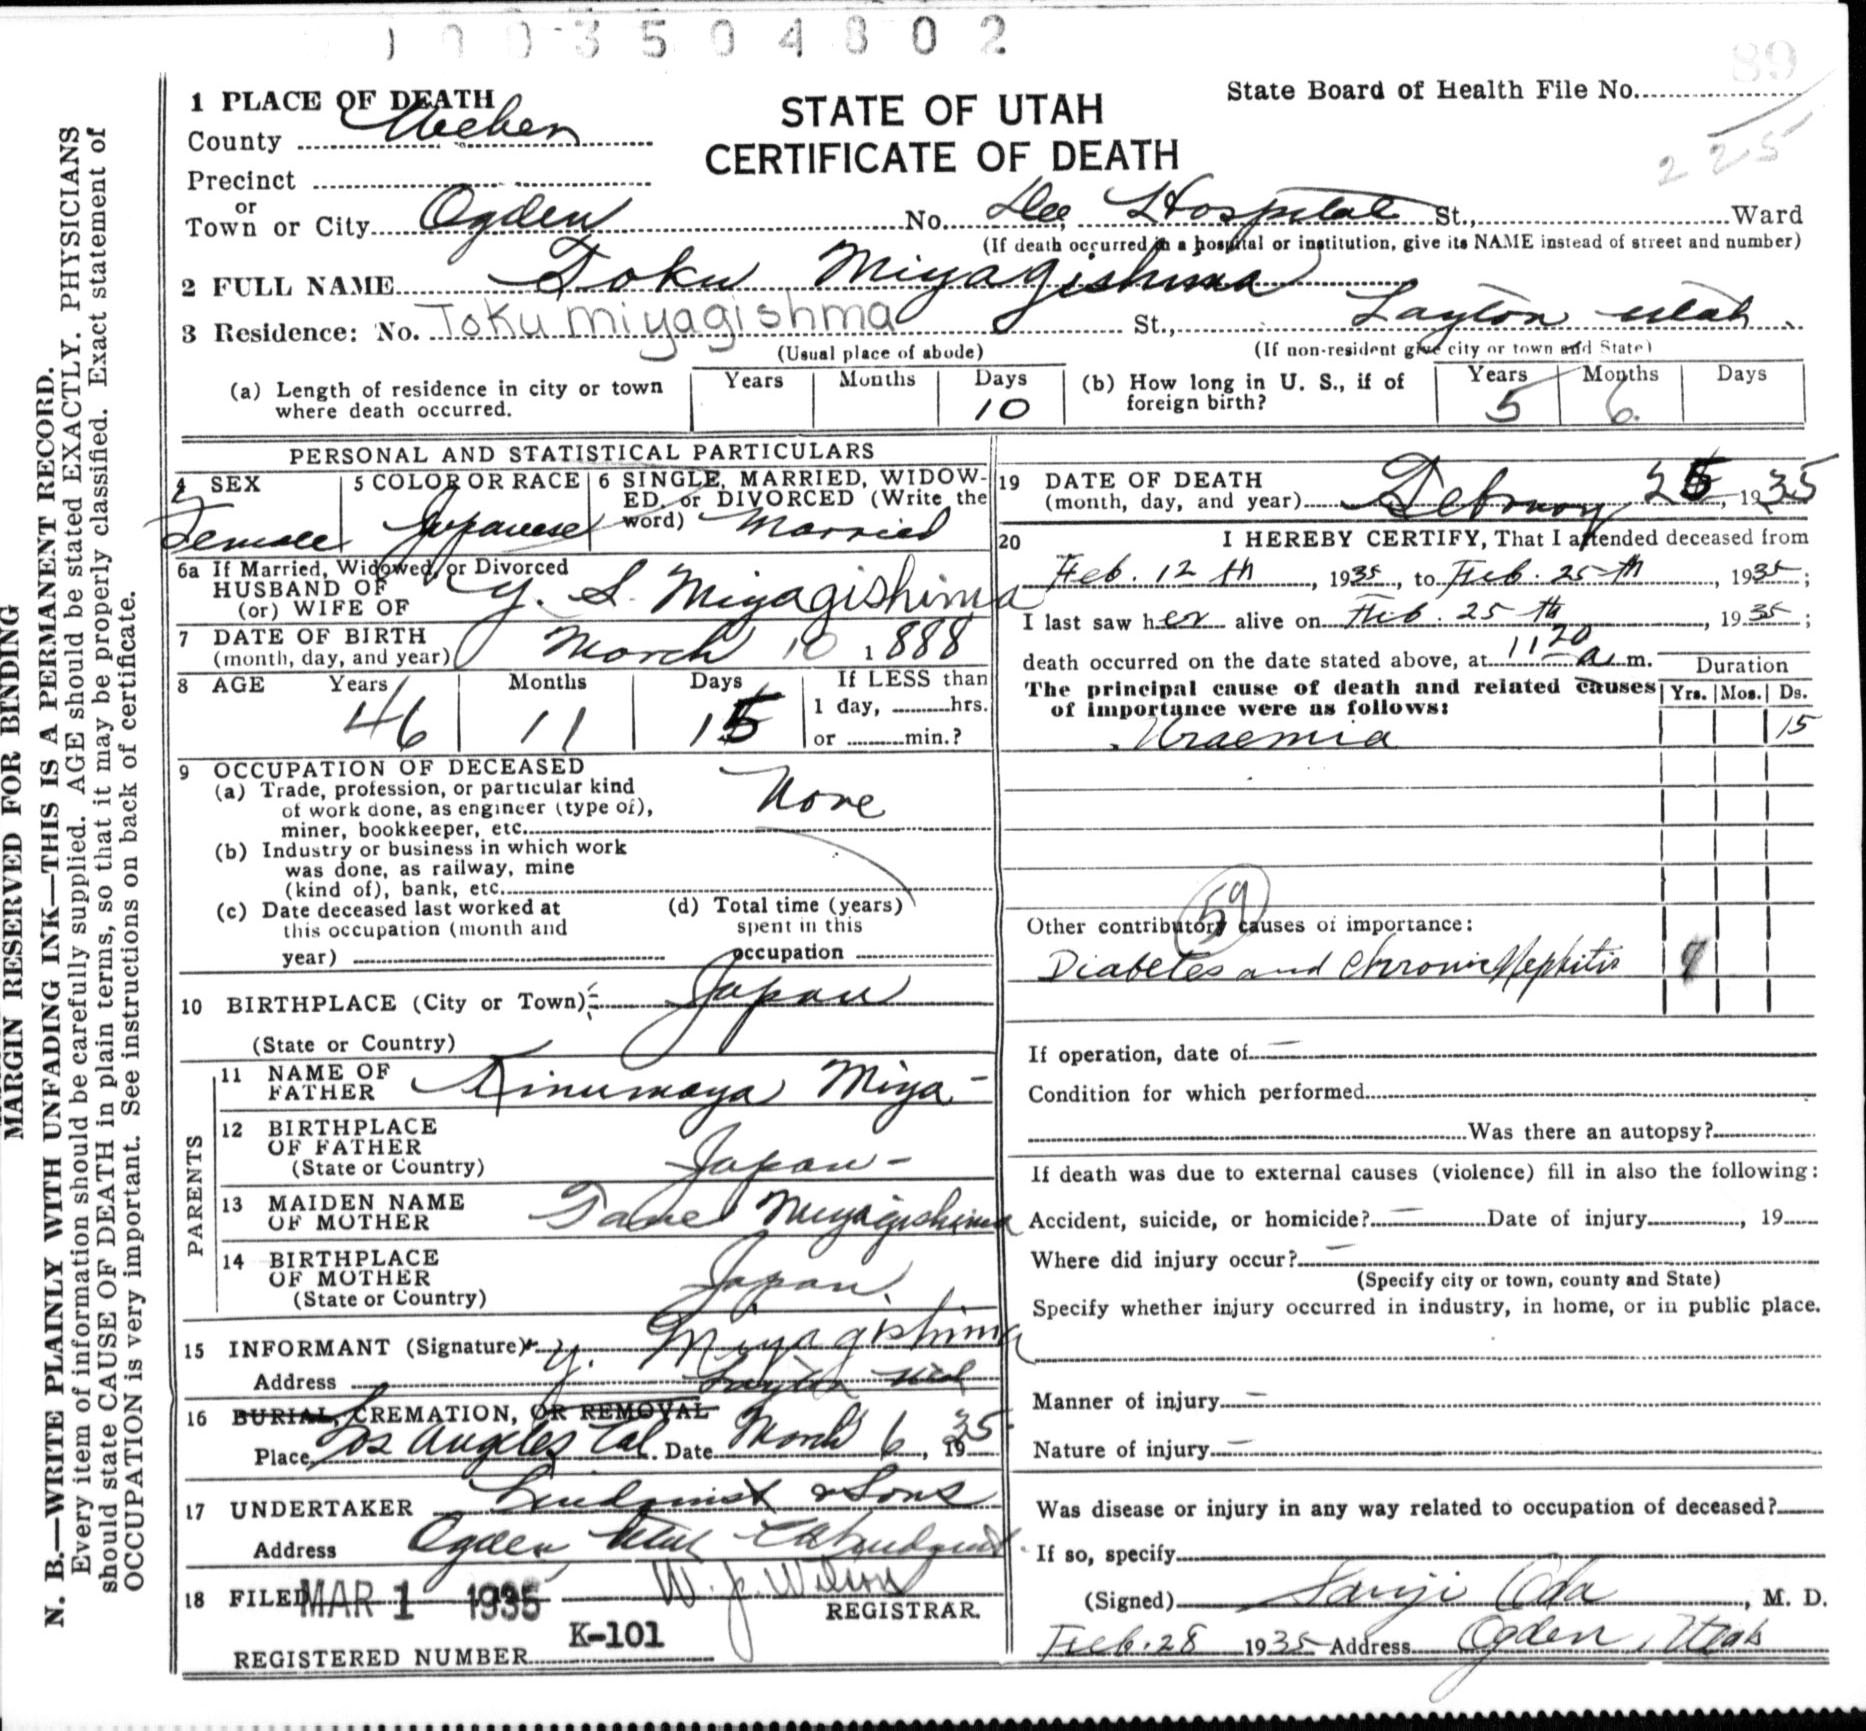 1003504802
89
1 PLACE OF DEATH
State Board of Health File No.
STATE OF UTAH
CERTIFICATE OF DEATH
225
County Weber
Precinct
or
Town or City Ogden No. Dee Hospital St., Ward
(If death occurred in a hospital or institution, give its NAME instead of street and number)
2 FULL NAME Toku Miyagishima
3 Residence: No. Toku miyagishma St., Layton Utah
(Usual place of abode) (If non-resident give city or town and State)
(a) Length of residence in city or town where death occurred. Years Months Days 10
(b) How long in U. S., if of foreign birth? Years 5 Months 6 Days
PERSONAL AND STATISTICAL PARTICULARS
4 SEX Female
5 COLOR OR RACE Japanese
6 SINGLE, MARRIED, WIDOW-
ED, or DIVORCED (Write the
word) Married
6a If Married, Widowed, or Divorced
HUSBAND OF
(or) WIFE OF Y. S. Miyagishima
7 DATE OF BIRTH
(month, day, and year) March 10 1888
8 AGE Years 46 Months 11 Days 15
If LESS than
1 day, hrs.
or min.?
9 OCCUPATION OF DECEASED
(a) Trade, profession, or particular kind
of work done, as engineer (type of),
miner, bookkeeper, etc. None
(b) Industry or business in which work
was done, as railway, mine
(kind of), bank, etc.
(c) Date deceased last worked at
this occupation (month and
year)
(d) Total time (years)
spent in this
occupation
10 BIRTHPLACE (City or Town) Japan
(State or Country)
PARENTS
11 NAME OF
FATHER Kinumaya Miya-
12 BIRTHPLACE
OF FATHER
(State or Country) Japan-
13 MAIDEN NAME
OF MOTHER Tane Miyagishima
14 BIRTHPLACE
OF MOTHER
(State or Country) Japan.
15 INFORMANT (Signature) Y. Miyagishima
Address Layton Utah
16 BURIAL, CREMATION, OR REMOVAL
Place Los Angeles Cal. Date March 6, 1935
17 UNDERTAKER Lindquist & Sons
Address Ogden Utah
18 FILED MAR 1 1935 W. J. Wilson
REGISTRAR.
REGISTERED NUMBER K-101
19 DATE OF DEATH
(month, day, and year) February 25, 1935
20 I HEREBY CERTIFY, That I attended deceased from
Feb. 12 th, 1935, to Feb. 25 th, 1935;
I last saw her alive on Feb. 25 th, 1935;
death occurred on the date stated above, at 11 20 a. m.
Duration
The principal cause of death and related causes
of importance were as follows:
Yrs. Mos. Ds.
Uraemia 15
59
Other contributory causes of importance:
Diabetes and Chronic Nephitis
If operation, date of —
Condition for which performed
Was there an autopsy?
If death was due to external causes (violence) fill in also the following:
Accident, suicide, or homicide? — Date of injury, 19
Where did injury occur? —
(Specify city or town, county and State)
Specify whether injury occurred in industry, in home, or in public place.
Manner of injury —
Nature of injury —
Was disease or injury in any way related to occupation of deceased?
If so, specify
(Signed) Sanji Oda, M. D.
Feb. 28 1935 Address Ogden, Utah
MARGIN RESERVED FOR BINDING
N. B.—WRITE PLAINLY WITH UNFADING INK—THIS IS A PERMANENT RECORD.
Every item of information should be carefully supplied. AGE should be stated EXACTLY. PHYSICIANS
should state CAUSE OF DEATH in plain terms, so that it may be properly classified. Exact statement of
OCCUPATION is very important. See instructions on back of certificate.